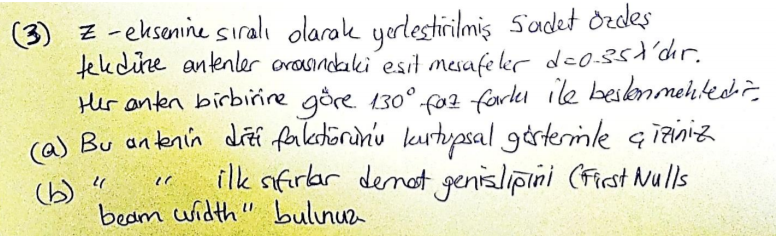 (3) z-eksenine sıralı olarak yerleştirilmiş 5 adet özdeş
tekdüze antenler arasındaki eşit mesafeler d=0.35λ'dır.
Her anten birbirine göre 130° faz farkı ile beslenmektedir.
(a) Bu antenin dizi faktörünü kutupsal gösterimle çiziniz
(b) " " ilk sıfırlar demet genişliğini (First Nulls
beam width" bulunuz